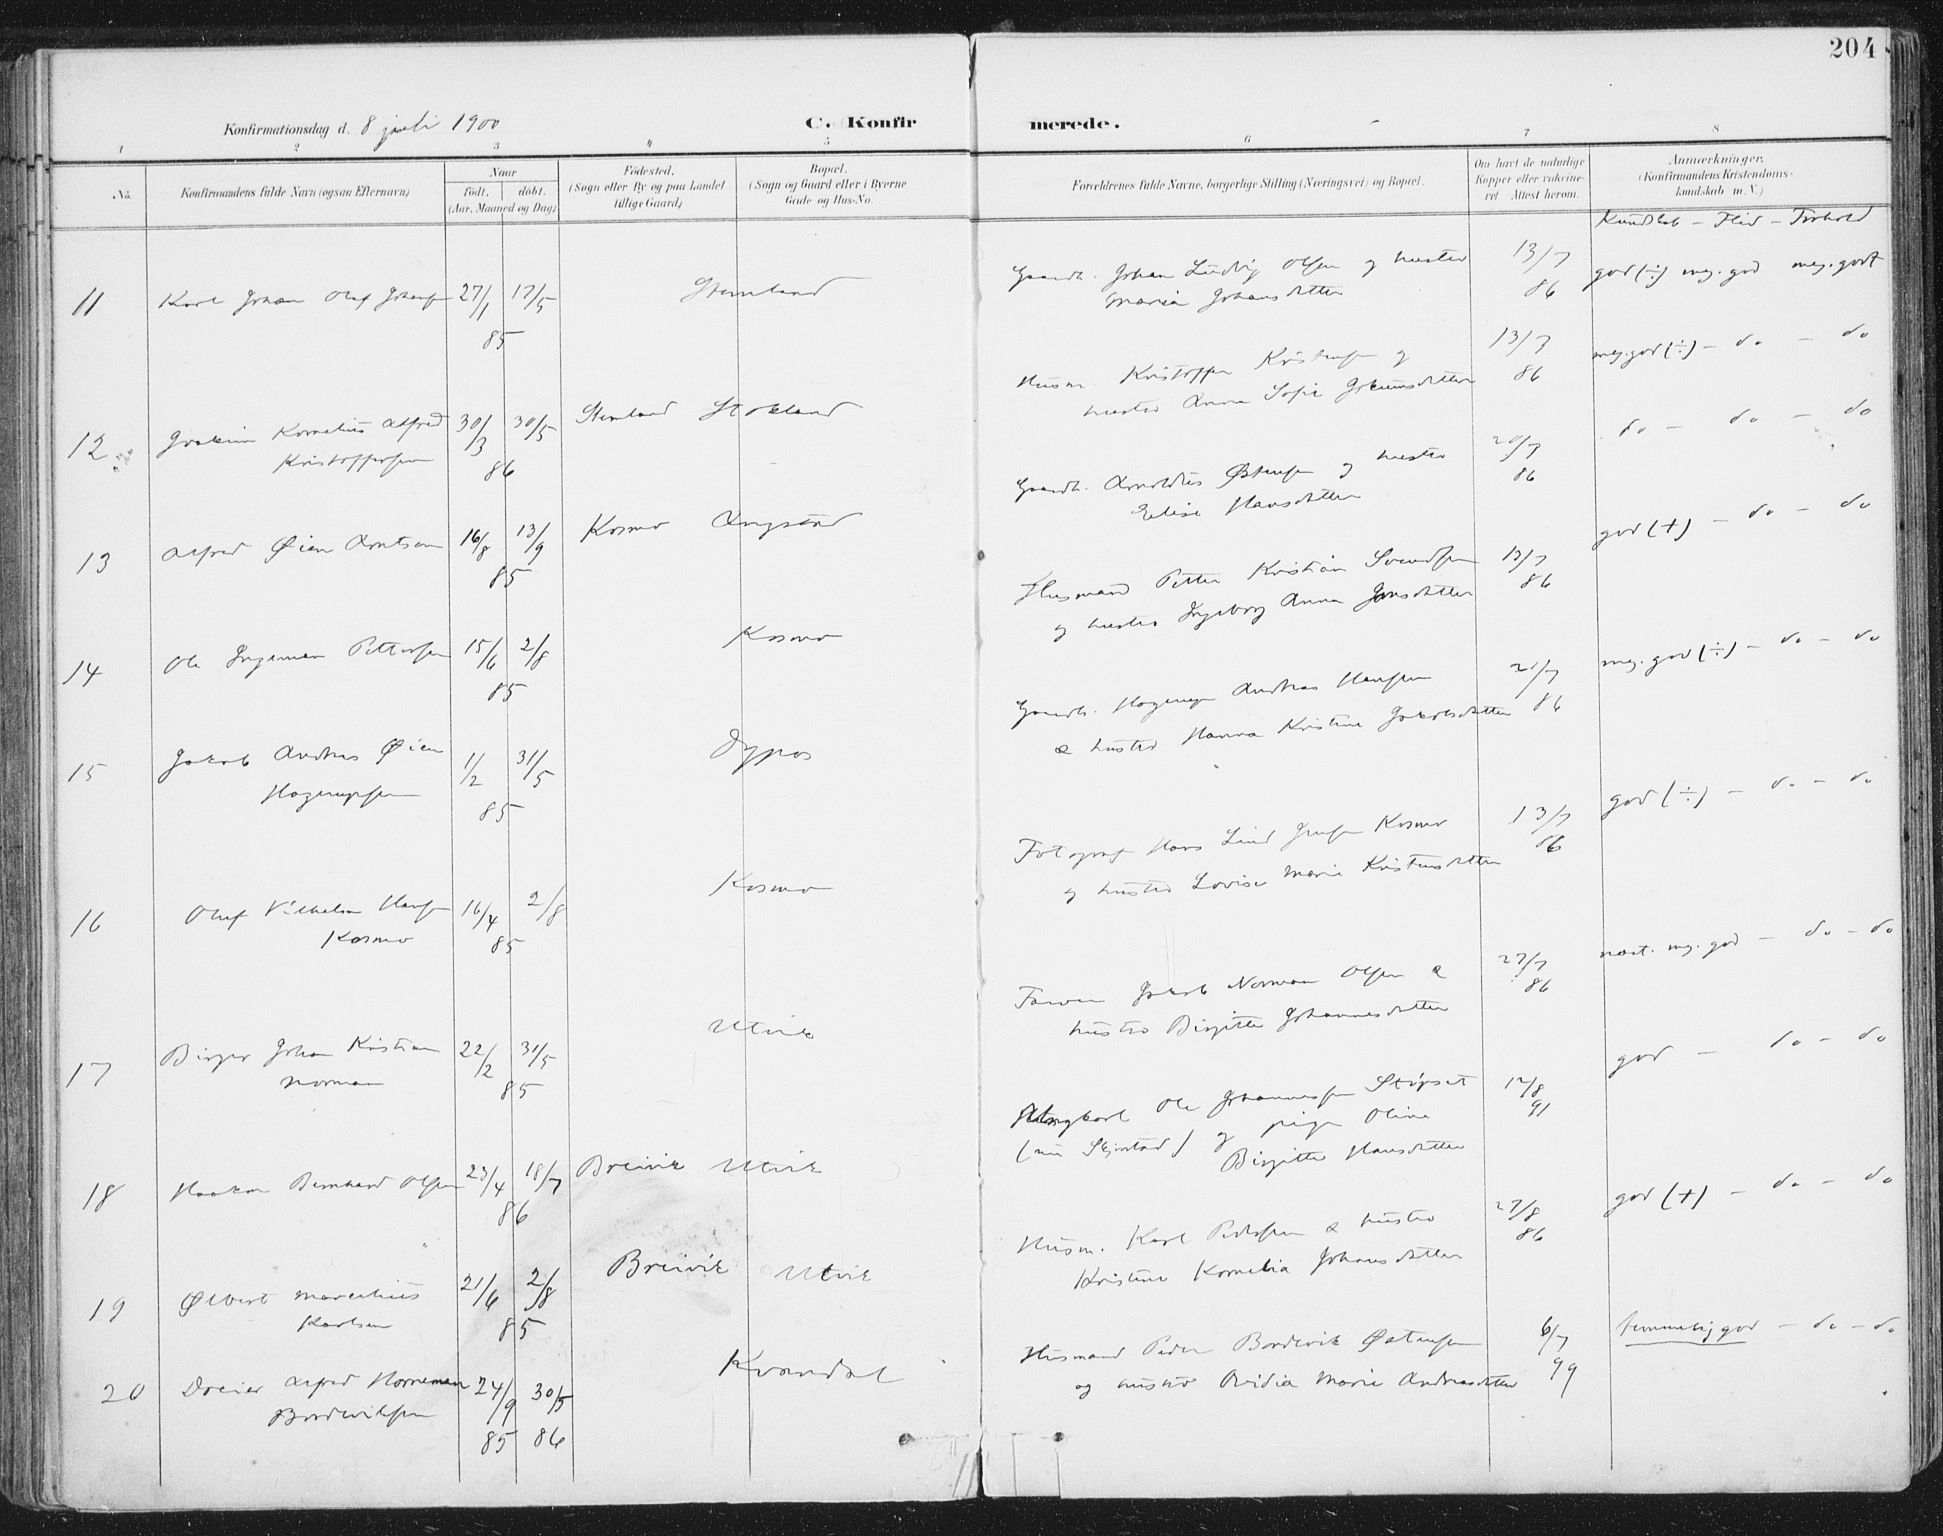 204
Konfirmationsdag d. 8 juli 1900
C. Konfirmerede.
1 2 3 4 5 6 7 8
No. Konfirmandens fulde Navn (ogsaa Efternavn) Naar født. døbt. (Aar, Maaned og Dag) Fødested. (Sogn eller By og paa Landet tillige Gaard) Bopæl. (Sogn og Gaard eller i Byerne Gade og Hus-No. Forældrenes fulde Navne, borgerlige Stilling (Næringsvei) og Bopæl. Om havt de naturlige Kopper eller vakcineret Attest herom. Anmærkninger. (Konfirmandens Kristendomskundskab m. V.)
Kundskab - Flid - Forhold
11 Karl Johan Olaf Johans 27/1 17/5 Stemland Gaardb. Johan Ludvig Olsen og hustro 13/7 god (÷) meg. god meg. godt
85 Maria Johansdatter 86
12 Joakim Kornelius Alfred 30/3 30/5 Stemland Stokland Husm. Kristoffer Kristensen og 13/7 meg. god (÷) - do - do
Kristoffersen 86 hustro Anna Sofie Joakimsdatter 86
13 Alfred Øien Arntsen 16/8 13/9 Kosmo Gaardb. Arnoldus Østensen og hustro 20/7 do - do - do
85 Elise Hansdatter 86
14 Ole Ingeman Pettersen 15/6 2/8 Kosmo Husmand Petter Kristian Svendsen 13/7 god (+) - do - do
85 og hustro Ingeborg Anna Jonsdatter 86
15 Jakob Andreas Øien 1/2 31/5 Gaardb. Hagerup Andreas Hansen 21/7 meg. god (÷) - do - do
Hagerupsen 85 & hustro Hanna Kristine Jakobsdatter 86
16 Oluf Vilhelm Hansen 16/4 2/8 Kosmo Fotograf Hans Lind Jensen Kosmo 13/7 god (÷) - do - do
Kosmo 85 og hustro Lovise Marie Kristensdatter 86
17 Birger Johan Kristian 22/2 31/5 Utvik Jakob Norman Olsen & 27/7 næst. meg. god - do - do
Norman 85 hustro Birgitte Johannesdatter 86
18 Haakon Bernhard Olsen 23/4 18/7 Breivik Utvik Ungkarl Ole Johannessen Støvset 12/8 god - do - do
86 (nu Skjerstad) og pige Oline 91
Birgitte Hansdatter
19 Ølbert Marcelius 21/6 2/8 Breivik Utvik Husm. Karl Pedersen & hustro 27/8 god (+) - do - do
Karlsen 85 Kristine Kornelia Johansdatter 86
20 Alfred Horneman 24/9 30/5 Kvandal Husmand Peder Bordevik Østensen 6/7 temmelig god - do - do
Bordeviksen 85 86 og hustro Ovidia Marie Andreasdatter 99